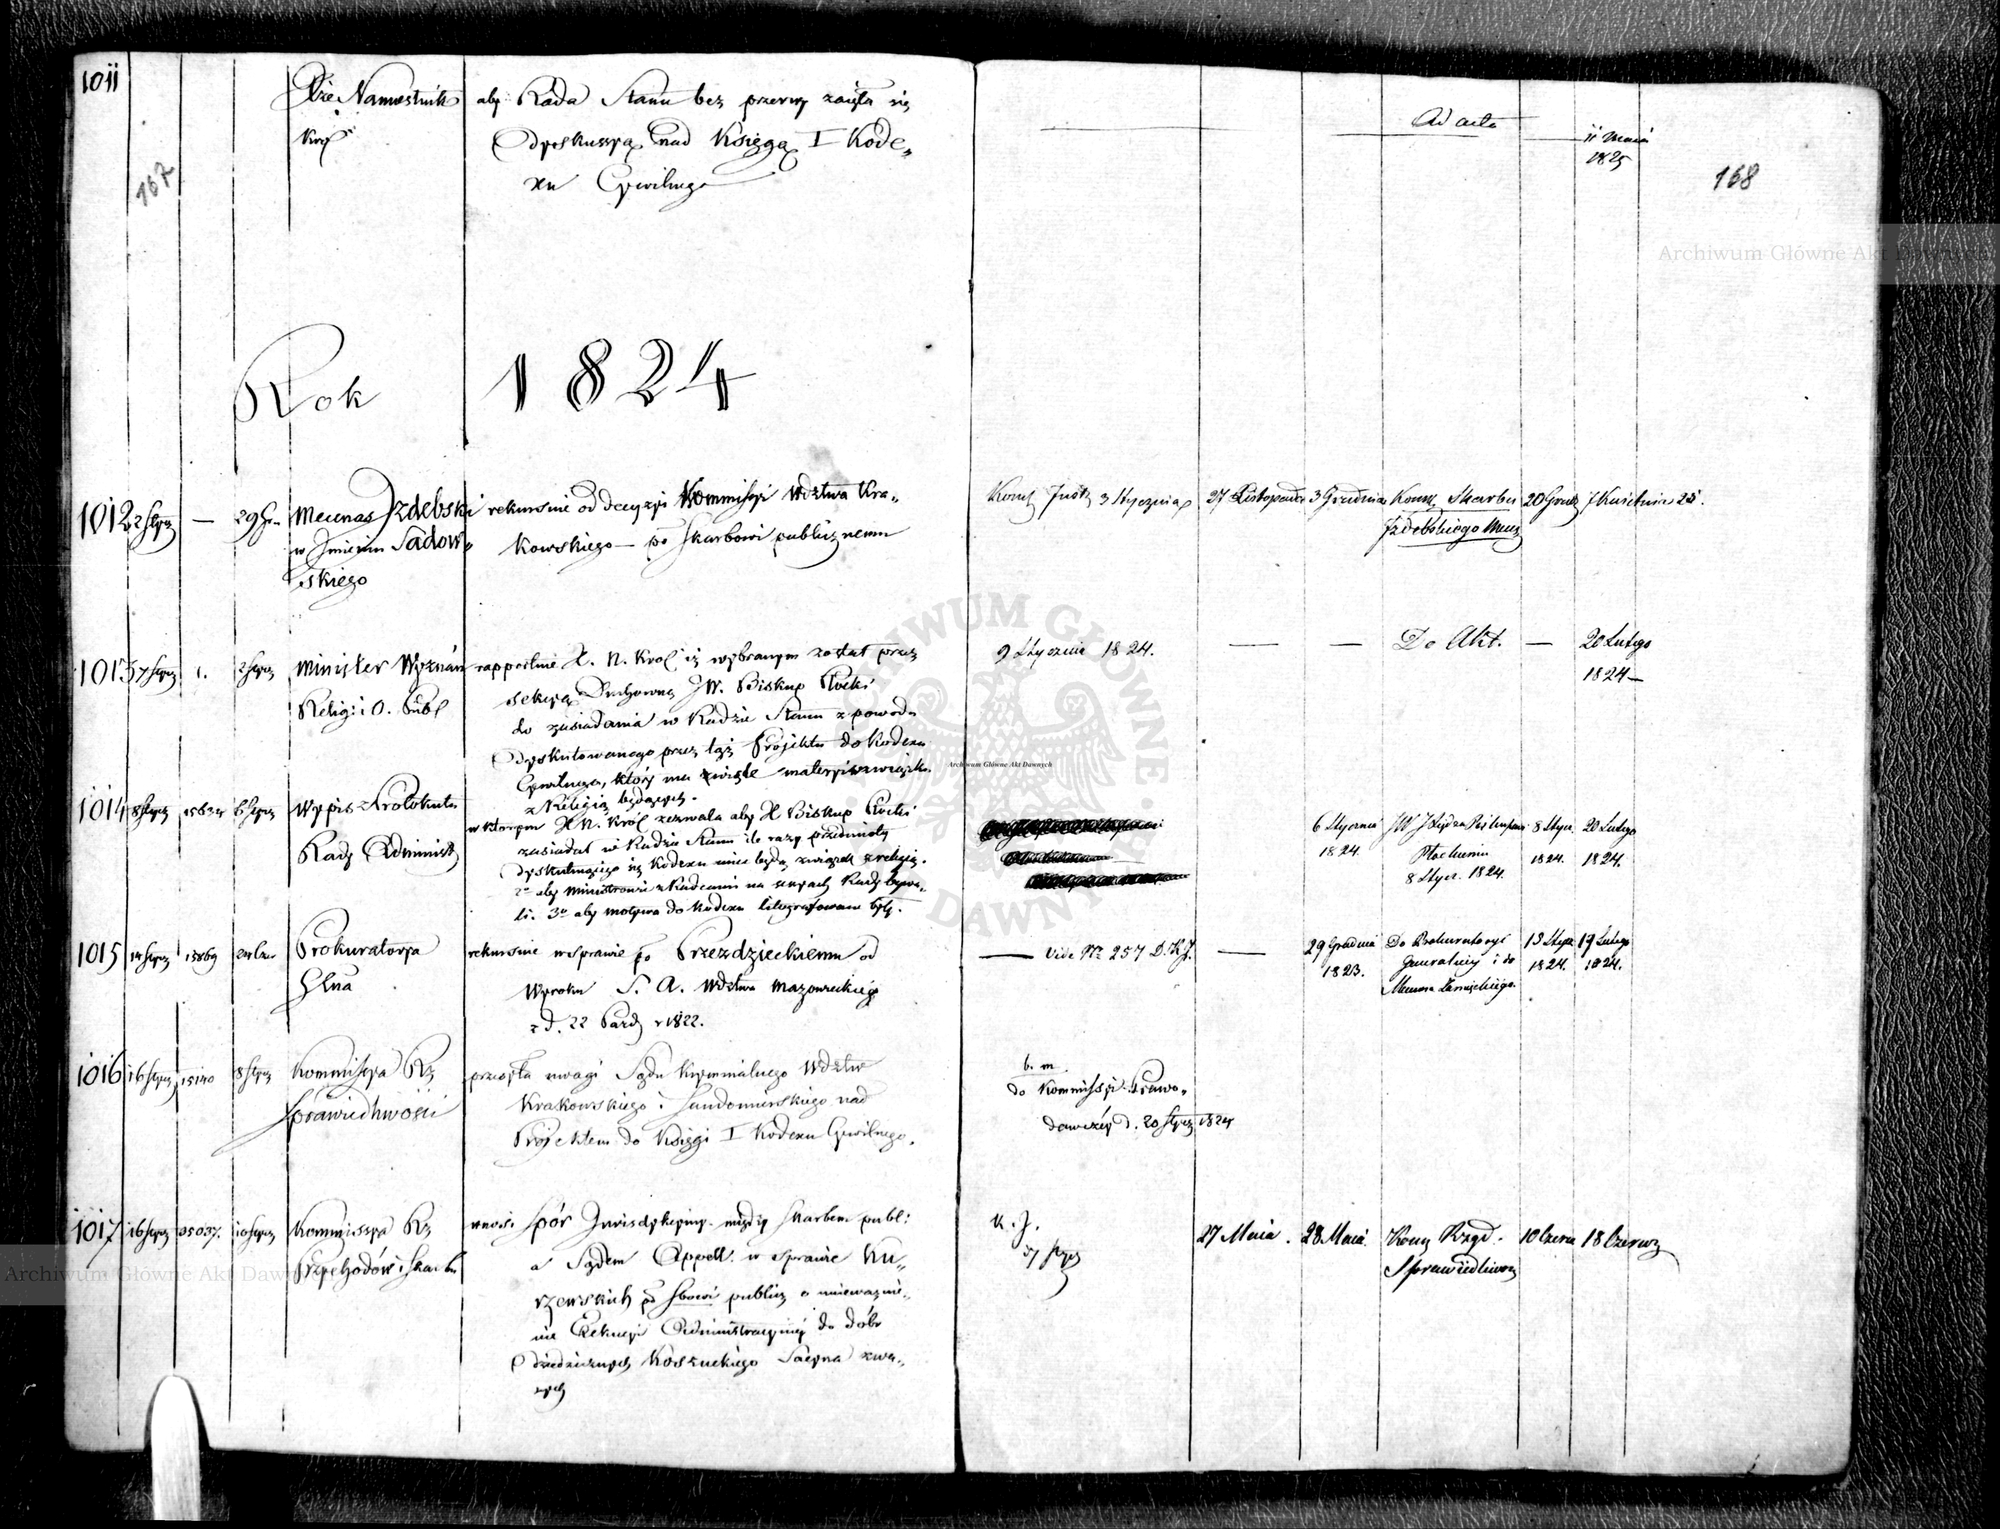 1011
Xże Namiestnik
Król
aby Rada Stanu bez przerwy zaięła się
Dyskussyą nad Księgą I Kode-
xu Cywilnego
Ad acta
11 Maia
1825
167
168
Rok 1824
1012 2 Stycz — 29 Gr.
Mecenas Jzdebski
w Jmieniu Sadow-
skiego
rekursuie od decyzyi Kommissyi Wdztwa Kra-
kowskiego — po Skarbowi publicznemu
3 Stycznia
27 Listopada
3 Grudnia
Komm Skarbu
Jzdebskiego Mece
20 Grud
7 Kwietnia 25.
1013 7 Stycz 1. 2 Stycz
Minister Wyznań
Relig: i O. Publ
rapportuie X. N. Król iż wybranym został przez
sekcyą Duchowną JW. Biskup Płocki
do zasiadania w Radzie Stanu z powodu
Dyskutowanego przez tąż Projektu do Kodexu
Cywilnego, który ma
z Religią będących.
9 Stycznia 1824.
— — Do Akt. —
20 Lutego
1824 —
1014 8 Stycz 6 Stycz
Wypis z Protokułu
Rady Administ
w którym X N. Król zezwala aby X Biskup Płocki
zasiadał w Radzie Stanu ile razy przedmioty
dyskutuiącego się Kodexu mieć będą związek z religią.
2o aby Ministrowie
3o aby motywa do Kodexu litografowane były.
6 Stycznia
1824.
8 Stycz. 1824.
8 Stycz.
1824.
20 Lutego
1824.
1015 14 Stycz 15869
Prokuratorya
Głna
rekursuie w sprawie po Przezdzieckiemu od
Wyroku S. A. Wdztwa Mazowieckiego
z d. 22 Paźdz r 1822.
— Vide Nr 257 D.K.J. —
29 Grudnia
1823.
Do Prokuratoryi
Generalney i do
Mecena
13 Stycz
1824.
19 Lutego
1824.
1016 16 Stycz 15140 8 Stycz
Kommissya Rz
Sprawiedliwości
przesyła uwagi Sądu Kryminalnego Wdztw
Krakowskiego i Sandomierskiego nad
Projektem do Księgi I Kodexu Cywilnego.
b. m.
do Kommissyi Prawo-
dawczéy d. 20 Stycz 1824
1017 16 Stycz 35037. 10 Stycz
Kommissya Rz
Przychodów i Skarbu
wnosi Spór Jurisdykcyiny między Skarbem publ:
a Sądem Appell. w sprawie Ku-
rzewskich po Sbowi publicz o unieważnie-
nie Exekucyi Administracyinéy do dóbr
Dziedzicznych Koszuckiego zwa-
nych
K. J.
17 Stycz
27 Maia.
28 Maia.
Komm Rząd.
Sprawiedliwoś
10 Czerw
18 Czerwc
Archiwum Główne Akt Dawnych
Archiwum Główne Akt Dawnych
Archiwum Główne Akt Dawnych
ARCHIWUM GŁÓWNE AKT DAWNYCH